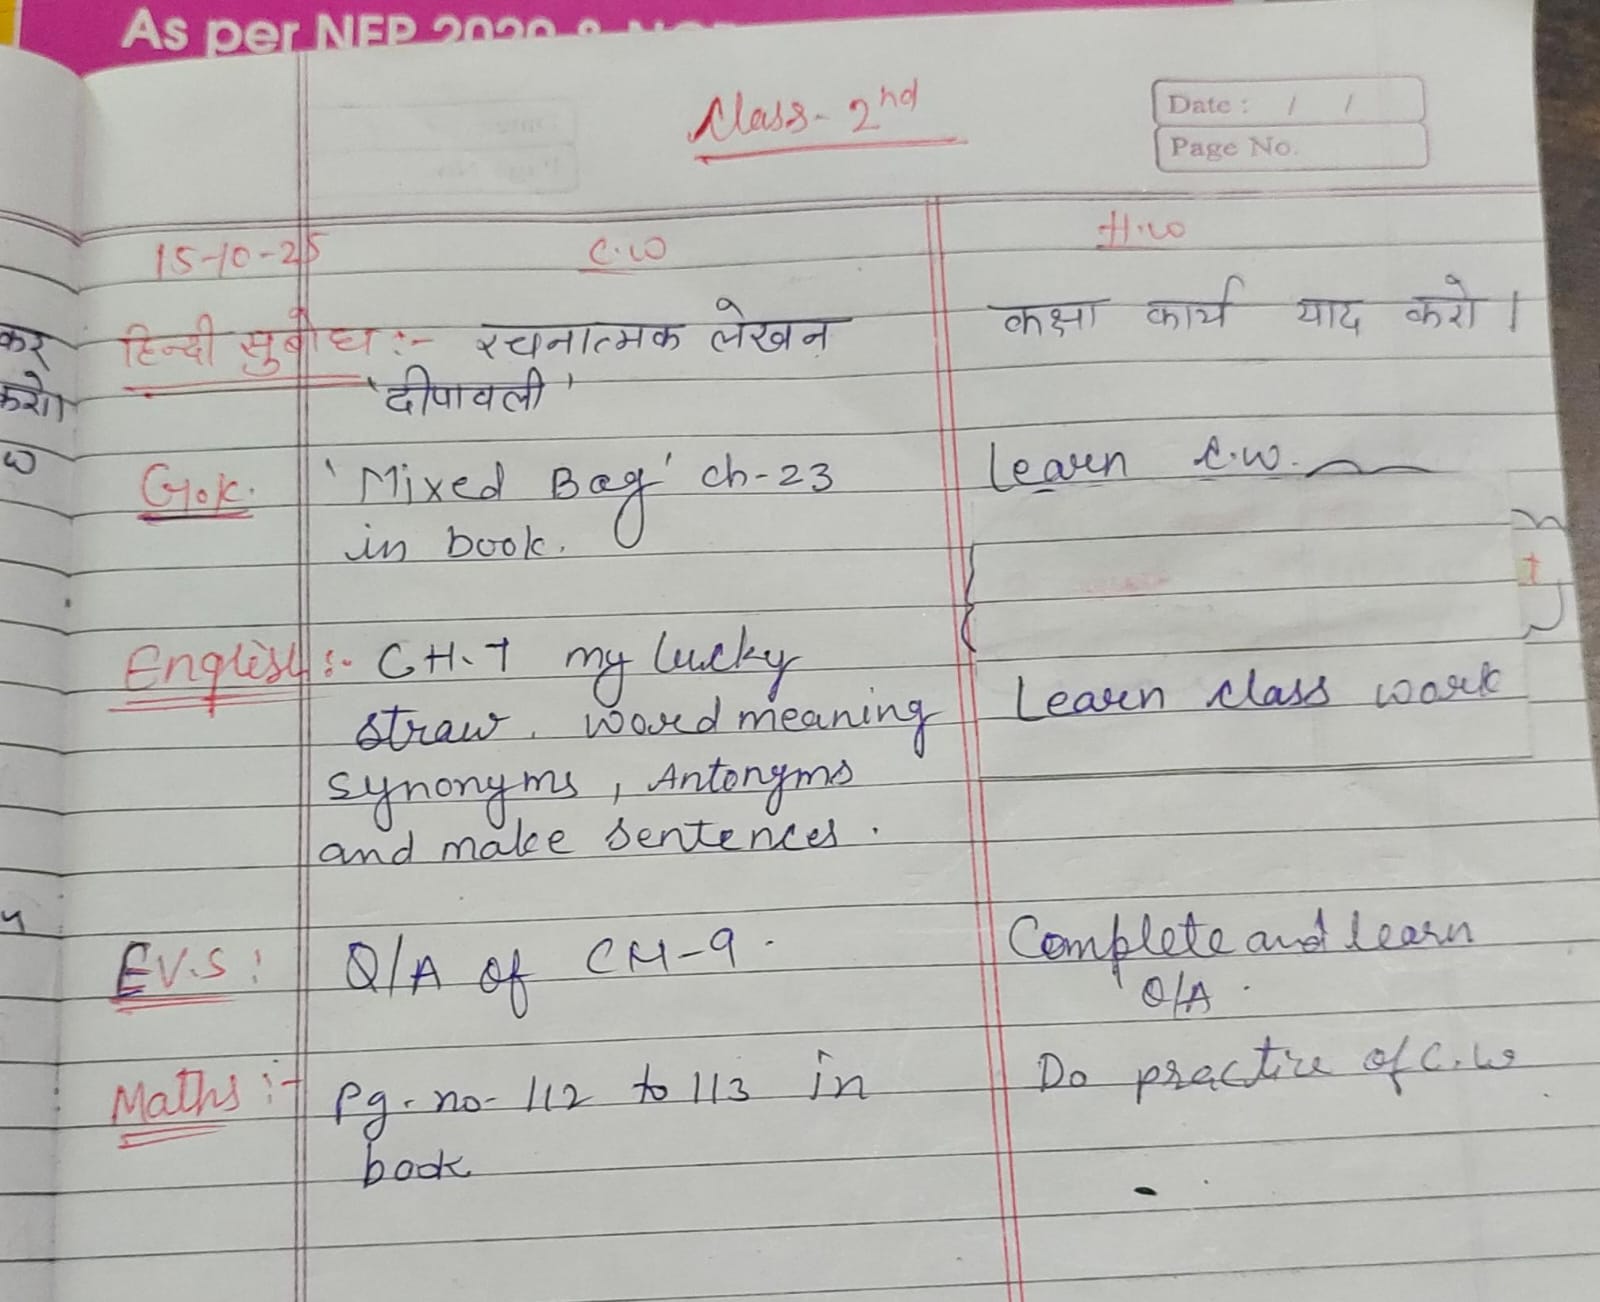 As per NEP 2020 &
Class- 2nd
Date : / /
Page No.
15-10-25 C.W H.w
हिन्दी सुबोध :- रचनात्मक लेखन कक्षा कार्य याद करो ।
'दीपावली'
G.K. 'Mixed Bag' ch-23 Learn C.W.
in book.
English :- CH-7 my lucky
straw. word meaning Learn class work
synonyms, Antonyms
and make sentences.
E.V.S : Q/A of CH-9. Complete and learn
Q/A.
Maths :- Pg. no- 112 to 113 in Do practice of C.w
book